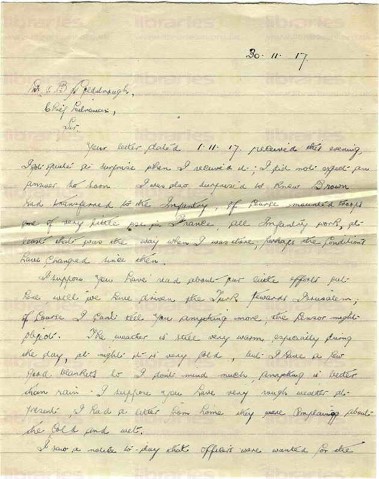 30.11.17
Chief Librarian,
Sir,
Your letter dated 1.11.17. received this evening,
I got quite a surprise when I received it; I did not expect an
answer so soon. I was also surprised to know Brown
had transferred to the Infantry, of course mounted troops
are of very little use in France, all Infantry work, at
least that was the way when I was there, perhaps the conditions
have changed since then.
I suppose you have read about our little efforts out
here well we have driven the Turk towards Jerusalem;
of course I can't tell you anything more, the Censor might
object. The weather is still very warm especially during
the day, at night it is very cold, but I have a few
good blankets so I don't mind much, anything is better
than rain. I suppose you have very rough weather at
present I had a letter from home they were complaining about
the cold and wet.
I saw a notice to-day that officers were wanted for the
libraries